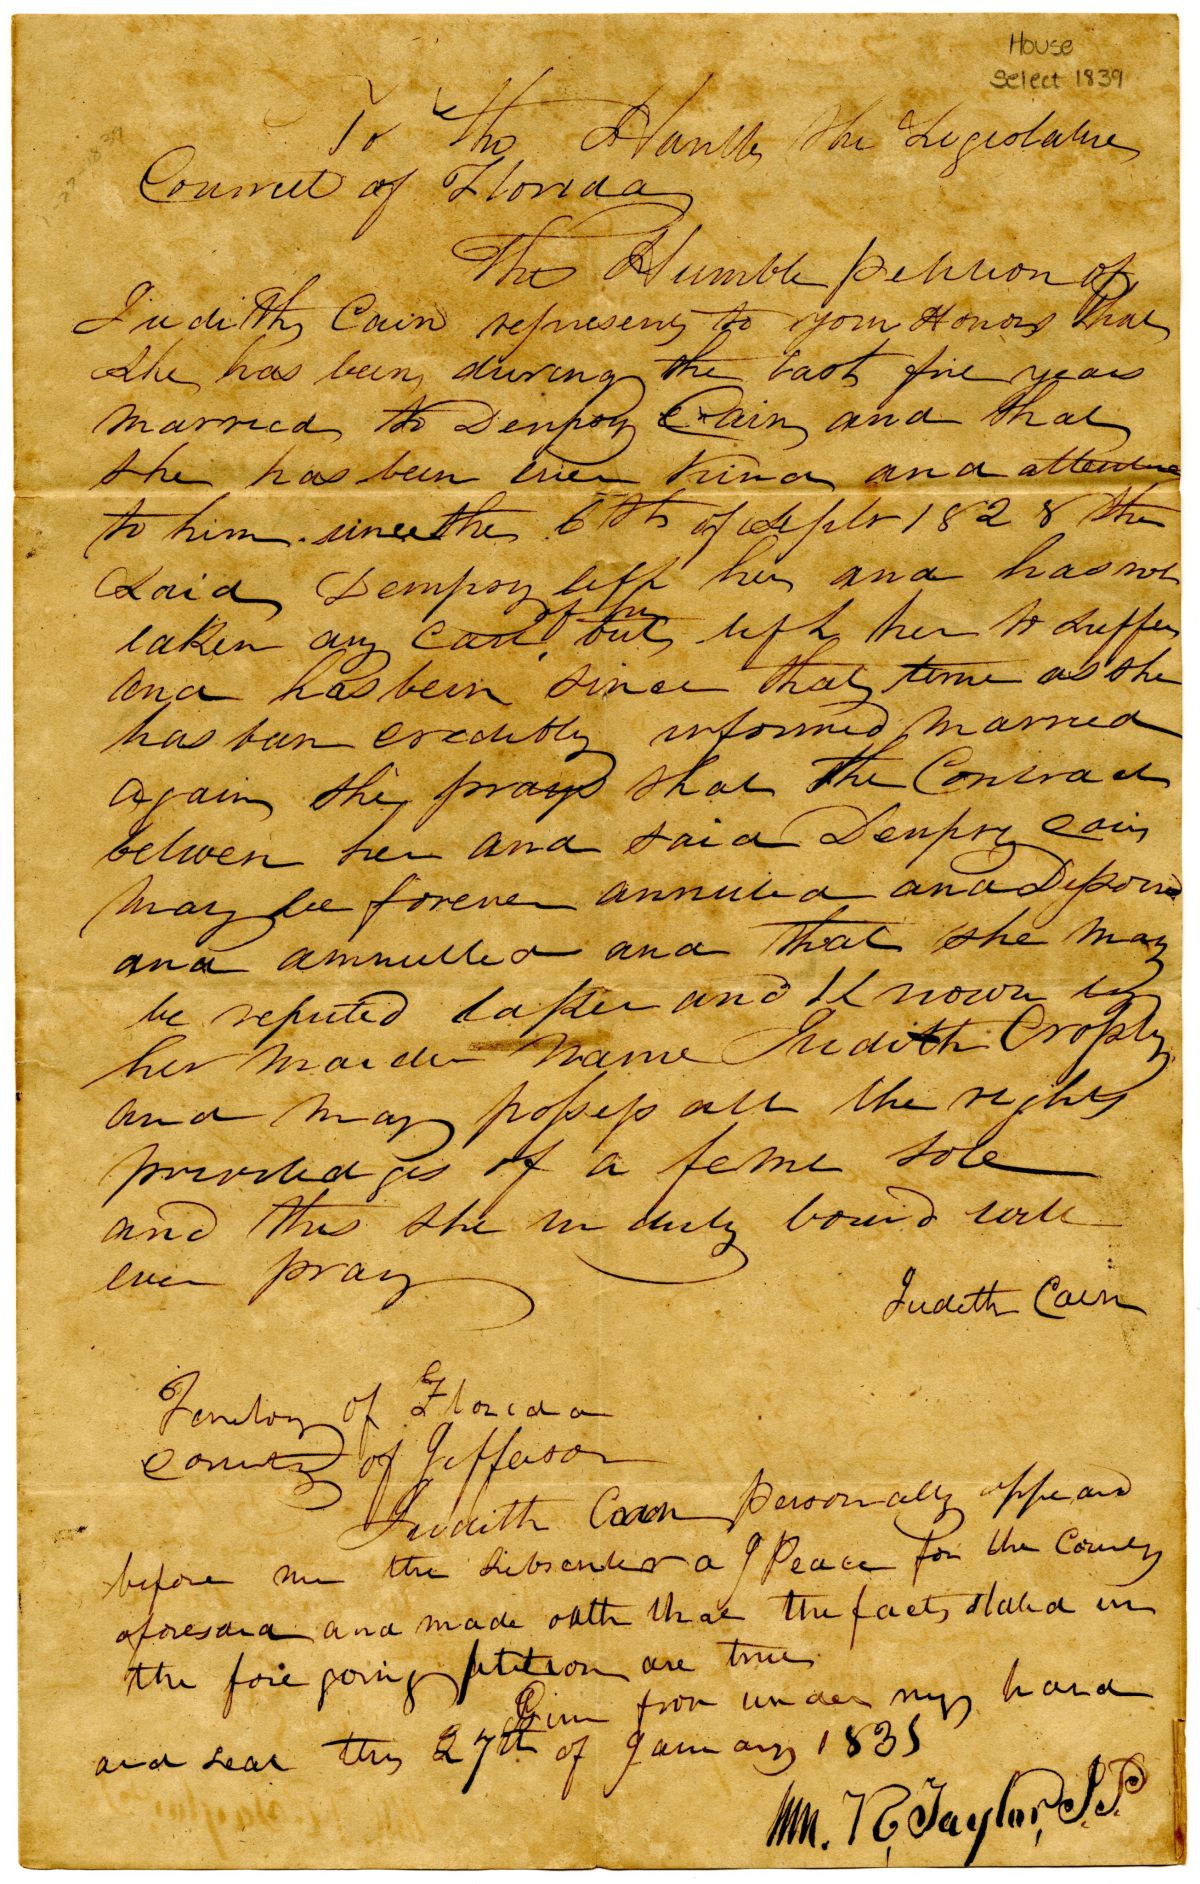 House
Select 1839
To the Honble the Legislative
Council of Florida
The Humble petition of
Judith Cain represents to your Honors that
she has been during the last five years
married to Dempsy Cain and that
she has been ever kind and attentive
to him. since the 6th of Septr 1828 the
said Dempsy left her and has not
taken any care of her but left her to suffer
and has been since that time as she
has been credibly informed married
again she prays that the Contract
between her and said Dempsy Cain
may be forever annuled and
and annulled and that she may
be reputed taken and Known by
her maiden name Judith Cropley
and may possess all the rights
priviledges of a feme sole
and this she in duty bound will
ever pray
Judith Cain
Territory of Florida
County of Jefferson
Judith Cain personally appeard
before me the subscriber a J Peace for the County
aforesaid and made oath that the facts stated in
the fore going petition are true
Given from under my hand
and seal this 27th of January 1835
Wm. R. Taylor, J.P.